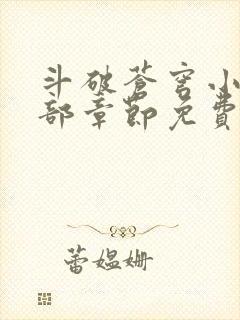 斗破苍穹小
部章节免费
蕾媪姗